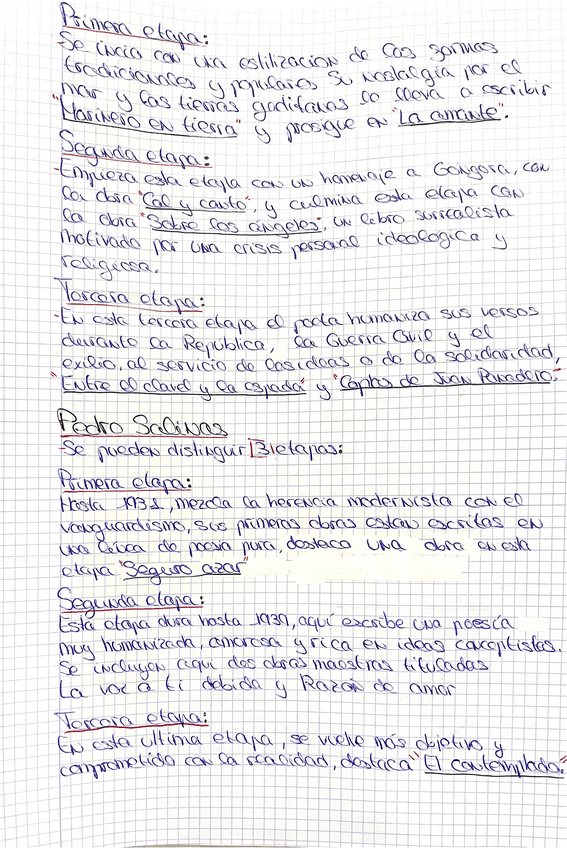 Primera etapa:
-Se incia con una estilización de las formas
tradicionales y populares su nostalgia por el
mar y las tierras gaditanas lo lleva a escribir
"Marinero en tierra" y prosigue en "La amante".
Segunda etapa:
-Empieza esta etapa con un homenaje a Gongora, con
la obra "Cal y canto", y culmina esta etapa con
la obra "Sobre los ángeles", un libro surrealista
motivado por una crisis personal ideologica y
religiosa.
Tercera etapa:
-En esta tercera etapa el poeta humaniza sus versos
durante la República, la Guerra Civil y el
exilio, al servicio de las ideas o de la solidaridad,
"Entre el clavel y la espada" y "Coplas de Juan Panadero."
Pedro Salinas
-Se pueden distinguir 3 etapas:
Primera etapa:
Hasta 1931, mezcla la herencia modernista con el
vanguardismo, sus primeras obras estan escritas en
una lírica de poesia pura, destaca una obra en esta
etapa "Seguro azar"
Segunda etapa:
Esta etapa dura hasta 1939, aquí escribe una poesía
muy humanizada, amorosa y rica en ideas conceptistas.
Se incluyen aqui dos obras maestras tituladas
La voz a ti debida y Razón de amor
Tercera etapa:
En esta ultima etapa, se vuelve más objetivo y
comprometido con la realidad, destaca "El contemplado."